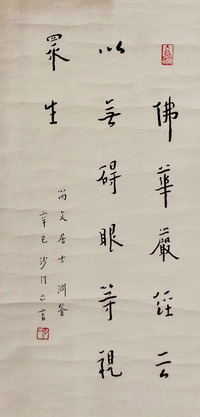 佛華嚴經云
以無礙眼等視
眾生
尚文居士淵鑒
辛巳沙門一音